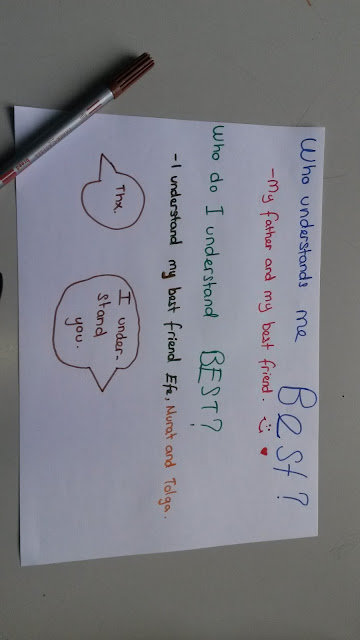 Who understands me BEST?
-My father and my best friend. :) ♥
Who do I understand BEST?
-I understand my best friend Efe, Murat and Tolga.
Thx.
I under-
stand
you.